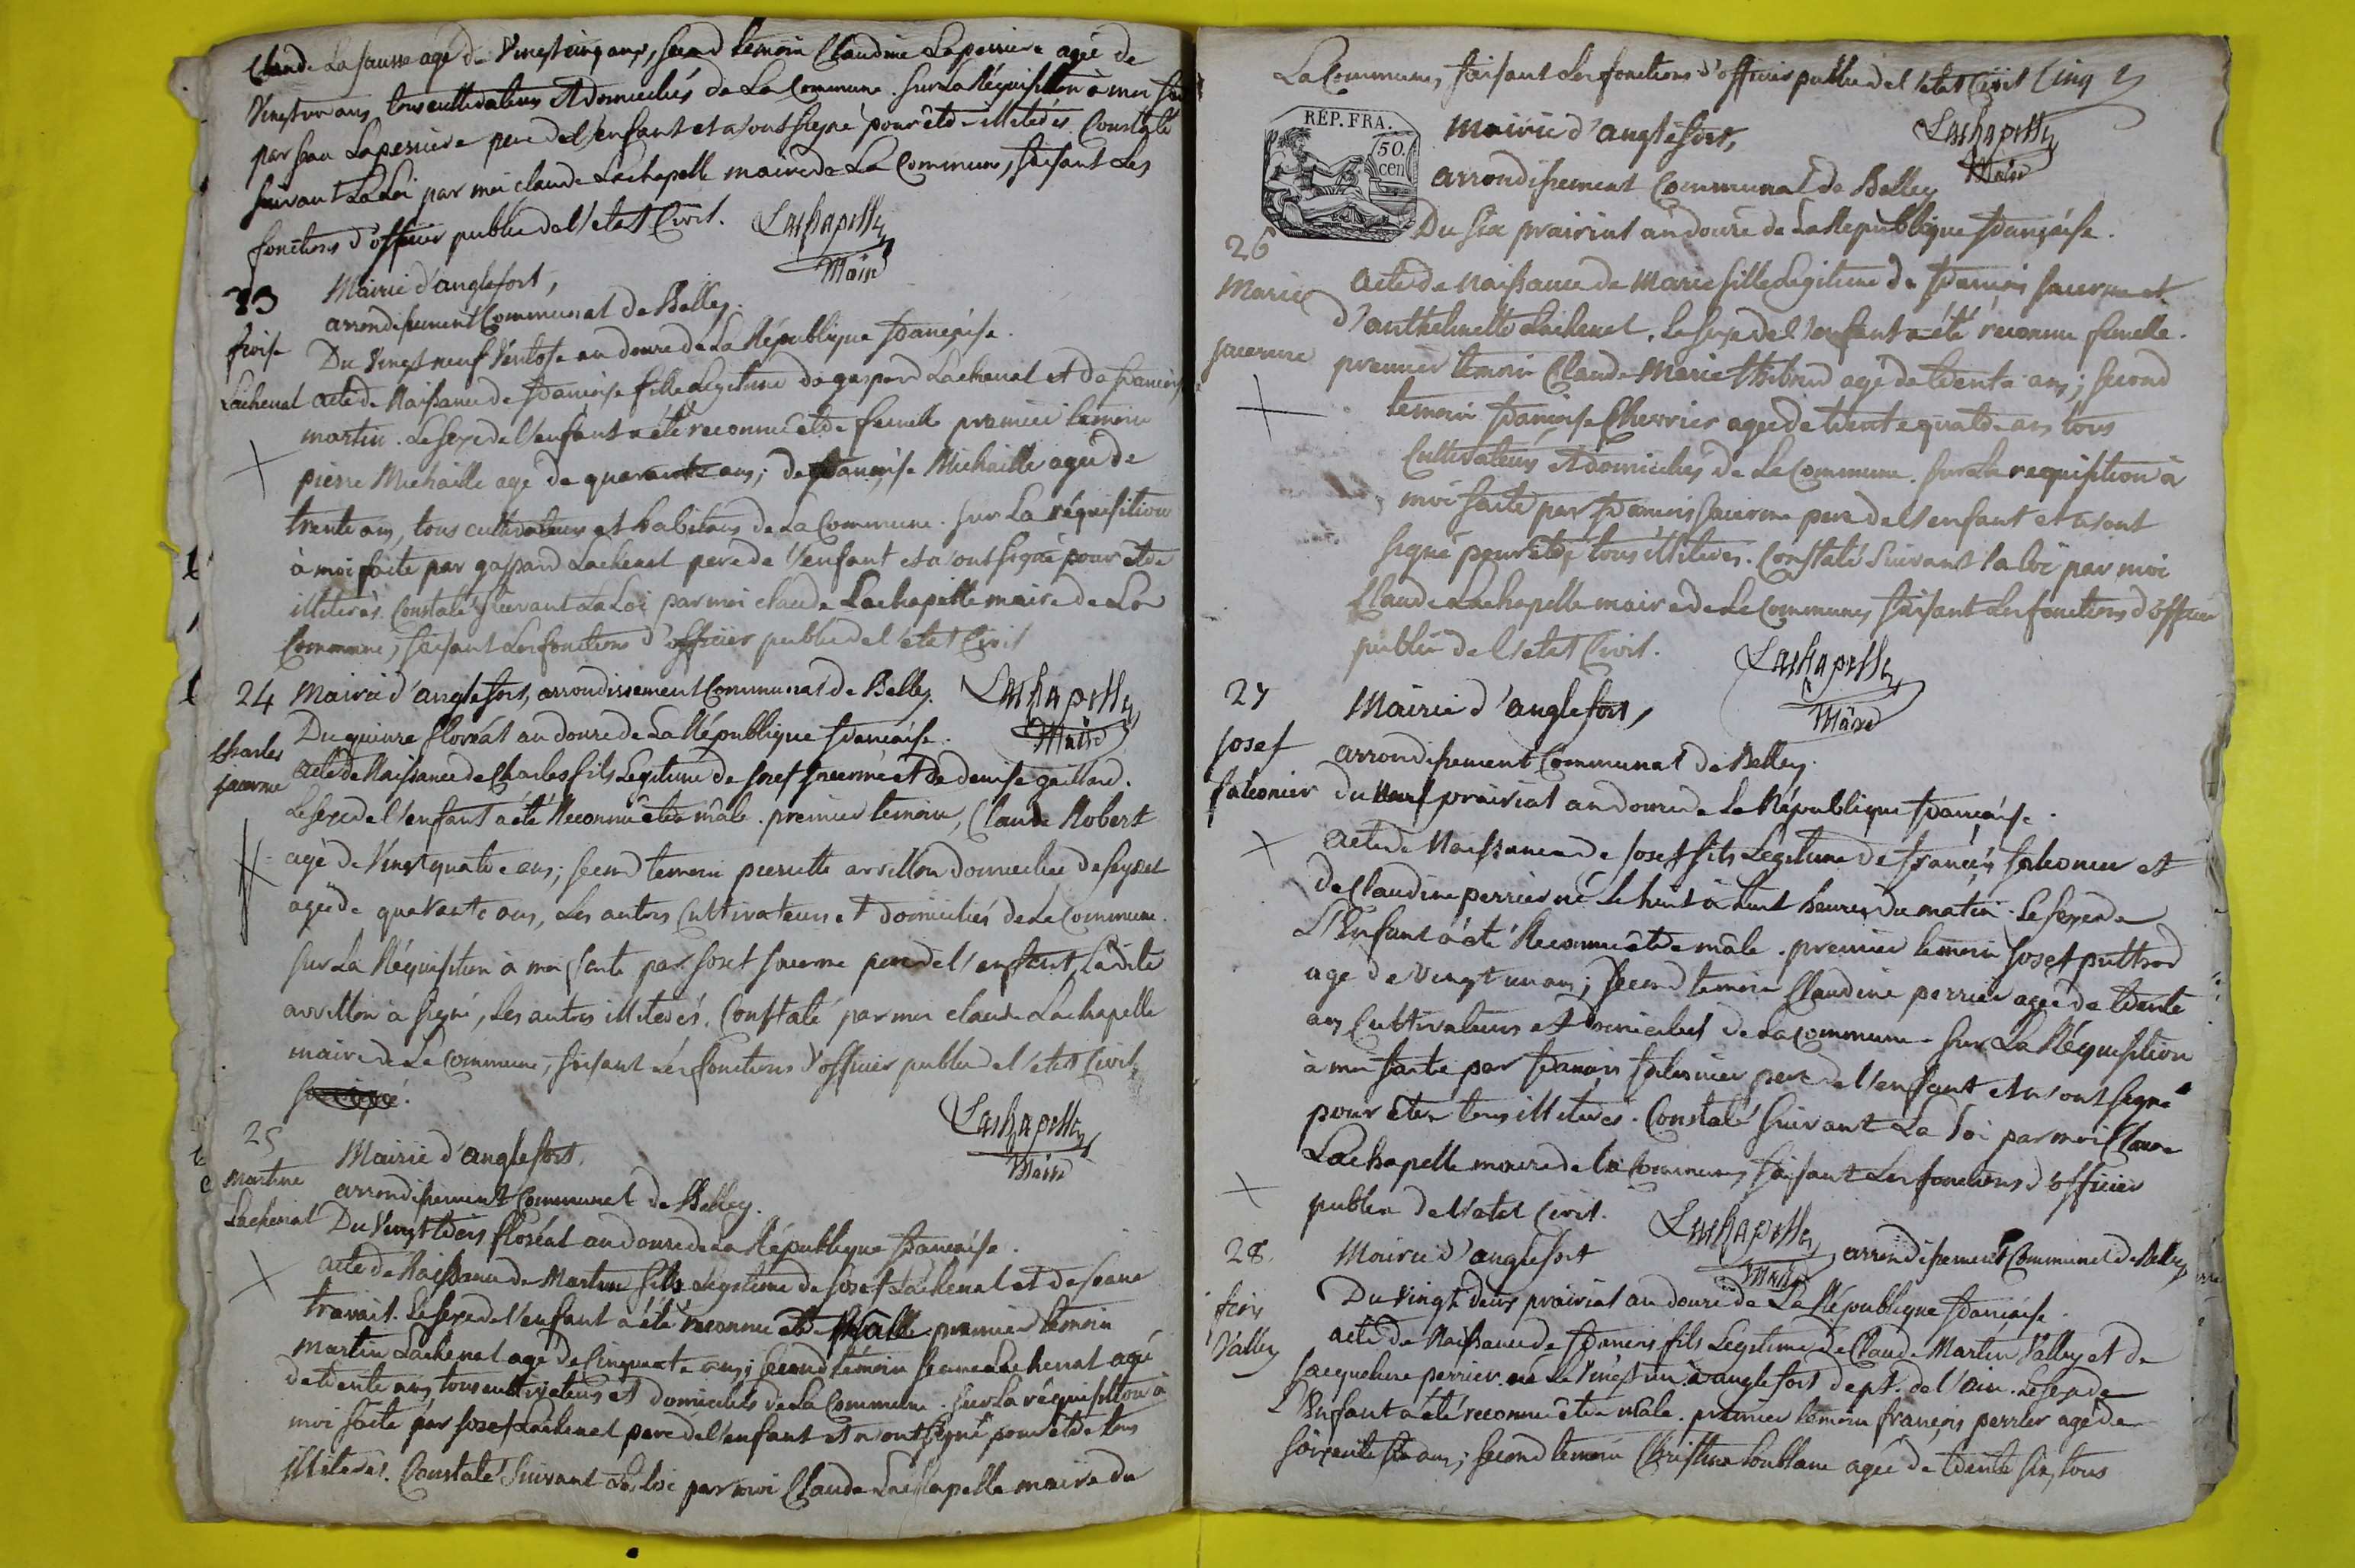 Claude Lasausse agé de Vingt cinq ans, second temoin Claudine Laperriere agée de
Vingt un ans, tous cultivateurs et domiciliés de La Commune. Sur La Réquisition à moi
par Jean Laperriere pere de l'enfant et n'ont signé pour être illiterés. Constaté
suivant La Loi par moi claude Lachapelle maire de La Commune, faisant Les
fonctions d'officier public de l'etat Civil.
Lachapelle
Maire
23
Mairie d'anglefort,
arrondissement Communal de Belley.
froise
Du Vingt neuf Ventose an douze de La République française.
Lachenal
acte de Naissance de françoise fille Legitime de gaspard Lachenal et de
martin. Le sexe de l'enfant a été reconnu être femelle premier temoin
pierre Michaille agé de quarante ans; de françoise Michaille agée de
trente ans, tous cultivateurs et habitans de La Commune. Sur La réquisition
à moi faite par gaspard Lachenal pere de l'enfant et n'ont signé pour être
illiterés. Constaté suivant La Loi par moi claude Lachapelle maire de La
Commune, faisant Les fonctions d'officier public de l'etat Civil
24
Mairie d'anglefort, arrondissement Communal de Belley.
Lachapelle
Maire
Du quinze floréal an douze de La République française.
Charles
jacerme
acte de Naissance de Charles fils Legitime de Josef jacerme et de denise gaillard.
Le sexe de l'enfant a été Reconnu être mâle. premier temoin, Claude Robert
agé de Vingt quatre ans; second temoin pierrette arvillon domiciliée de seyssel
agée de quarante ans, Les autres Cultivateurs et domiciliés de La Commune.
Sur La Réquisition à moi faite par Josef jacerme pere de l'enfant, Ladite
arvillon à signé, Les autres illiterés. Constaté par moi claude Lachapelle
maire de La Commune, faisant Les fonctions d'officier public de l'etat Civil
Lachapelle
Maire
25
Martine
Lachenal
Mairie d'anglefort.
arrondissement Communal de Belley.
Du Vingt trois floréal an douze de La République française.
acte de Naissance de Martin fils Legitime de Josef Lachenal et de jeane
travait. Le sexe de l'enfant a été reconnu être Mâlle premier temoin
Martin Lachenal agé de Cinquante ans; second temoin jeane Lachenal agée
de trente ans, tous cultivateurs et domiciliés de La Commune. Sur La réquisition à
moi faite par Josef Lachenal pere de l'enfant et n'ont signé pour être tous
illiterés. Constaté suivant La loi par moi Claude Lachapelle maire de
La Commune, faisant Les fonctions d'officier public de l'etat Civil Cinq
REP. FRA.
50.
cen
Lachapelle
Maire
Mairie d'anglefort,
arrondissement Communal de Belley
Du six prairial an douze de La République française.
26
Marie
jacerme
acte de Naissance de Marie fille Legitime de francois jacerme et
d'anthelmette Lachenal. Le sexe de l'enfant a été reconnu femelle.
premier temoin Claude Marie Thibaud agé de trente ans; second
temoin françoise Cherrier agée de trente quatre ans tous
Cultivateurs et domiciliés de La Commune. Sur La requisition à
moi faite par francois jacerme pere de l'enfant et n'ont
signé pour être tous illiterés. Constaté Suivant la loi par moi
Claude Lachapelle maire de La Commune, faisant Les fonctions d'officier
public de l'etat Civil.
Lachapelle
Maire
27
Josef
falconier
Mairie d'anglefort,
arrondissement Communal de Belley.
du neuf prairial an douze de La République française.
acte de Naissance de Josef fils Legitime de françois falconier et
de Claudine perrier né Le huit à huit heures du matin. Le sexe de
L'Enfant à été Reconnu être mâle. premier temoin Josef puthod
agé de Vingt un ans; second temoin Claudine perrier agée de trente
ans Cultivateurs et domiciliés de La Commune. Sur La Réquisition
à moi faite par francois falconier pere de l'enfant et n'ont signé
pour être tous illiterés. Constaté Suivant La Loi par moi Claude
Lachapelle maire de la Commune, faisant Les fonctions d'officier
public de l'etat Civil.
Lachapelle
Maire
28
Mairie d'anglefort arrondissement Communal de Belley
fçois
Valley
Du Vingt deux prairial an douze de La République française.
acte de Naissance de francois fils Legitime de Claude Martin Valley et de
Jacqueline perrier. né Le Vingt un à anglefort dept. de l'ain. Le sexe de
L'Enfant à été reconnu être mâle. premier temoin françois perrier agé de
soixante six ans; second temoin Christine Loublane agée de trente six, tous